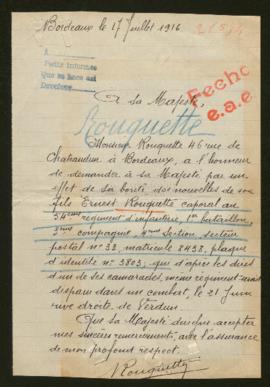 Bordeaux le 27 Juillet 1916
A
Petit Informes
Que se hace así
Devolver
Fecho
e.a.e
A Sa Majesté,
Rouquette
Monsieur Rouquette 46 rue de
à Bordeaux, a l'honneur
de demander à Sa Majesté par un
effet de Sa bonté des nouvelles de son
fils Ernest Rouquette caporal au
34ème régiment d'infanterie, 1er bataillon,
3ème compagnie, 4ème Section, secteur
postal n° 32, matricule 2438, plaque
d'identité n° 3803; que d'après les dires
d'un de ses camarades, même régiment, avait
disparu dans un combat, le 21 Juin
rive droite de Verdun.
Que Sa Majesté daigne accepter
mes sincères remerciements, avec l'assurance
de mon profond respect.
Rouquette